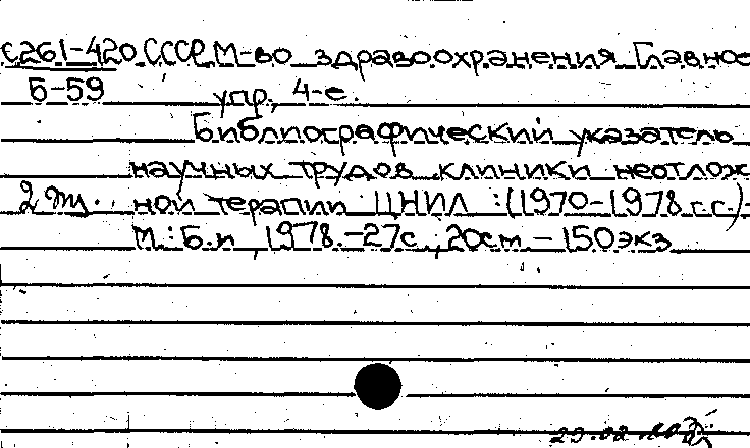 С261-420 СССР. М-во здравоохранения. Главное
Б-59 упр., 4-е.
Библиографический указатель
научных трудов клиники неотлож
2 экз. ной терапии ЦНИЛ : (1970-1978 г.г.)-
М.: Б.и, 1978.-27с.; 20см - 150экз